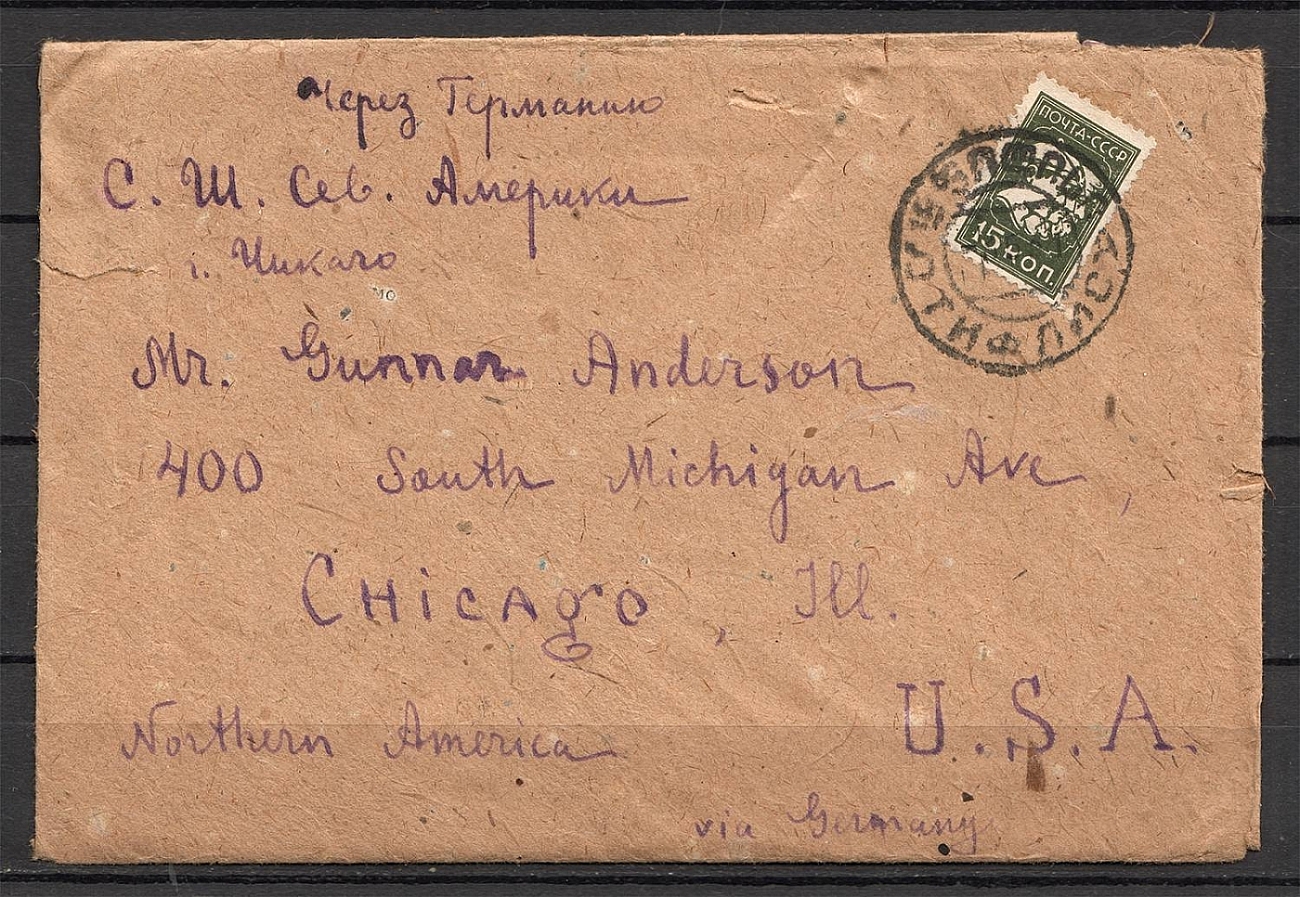 Через Германию
С. Ш. Сев. Америки
г. Чикаго
ПОЧТА-СССР
15 КОП.
ТИФЛИС
Mr. Gunnar Anderson
400 South Michigan Ave,
CHicAgo, Ill.
U.S.A.
Northern America
via Germany